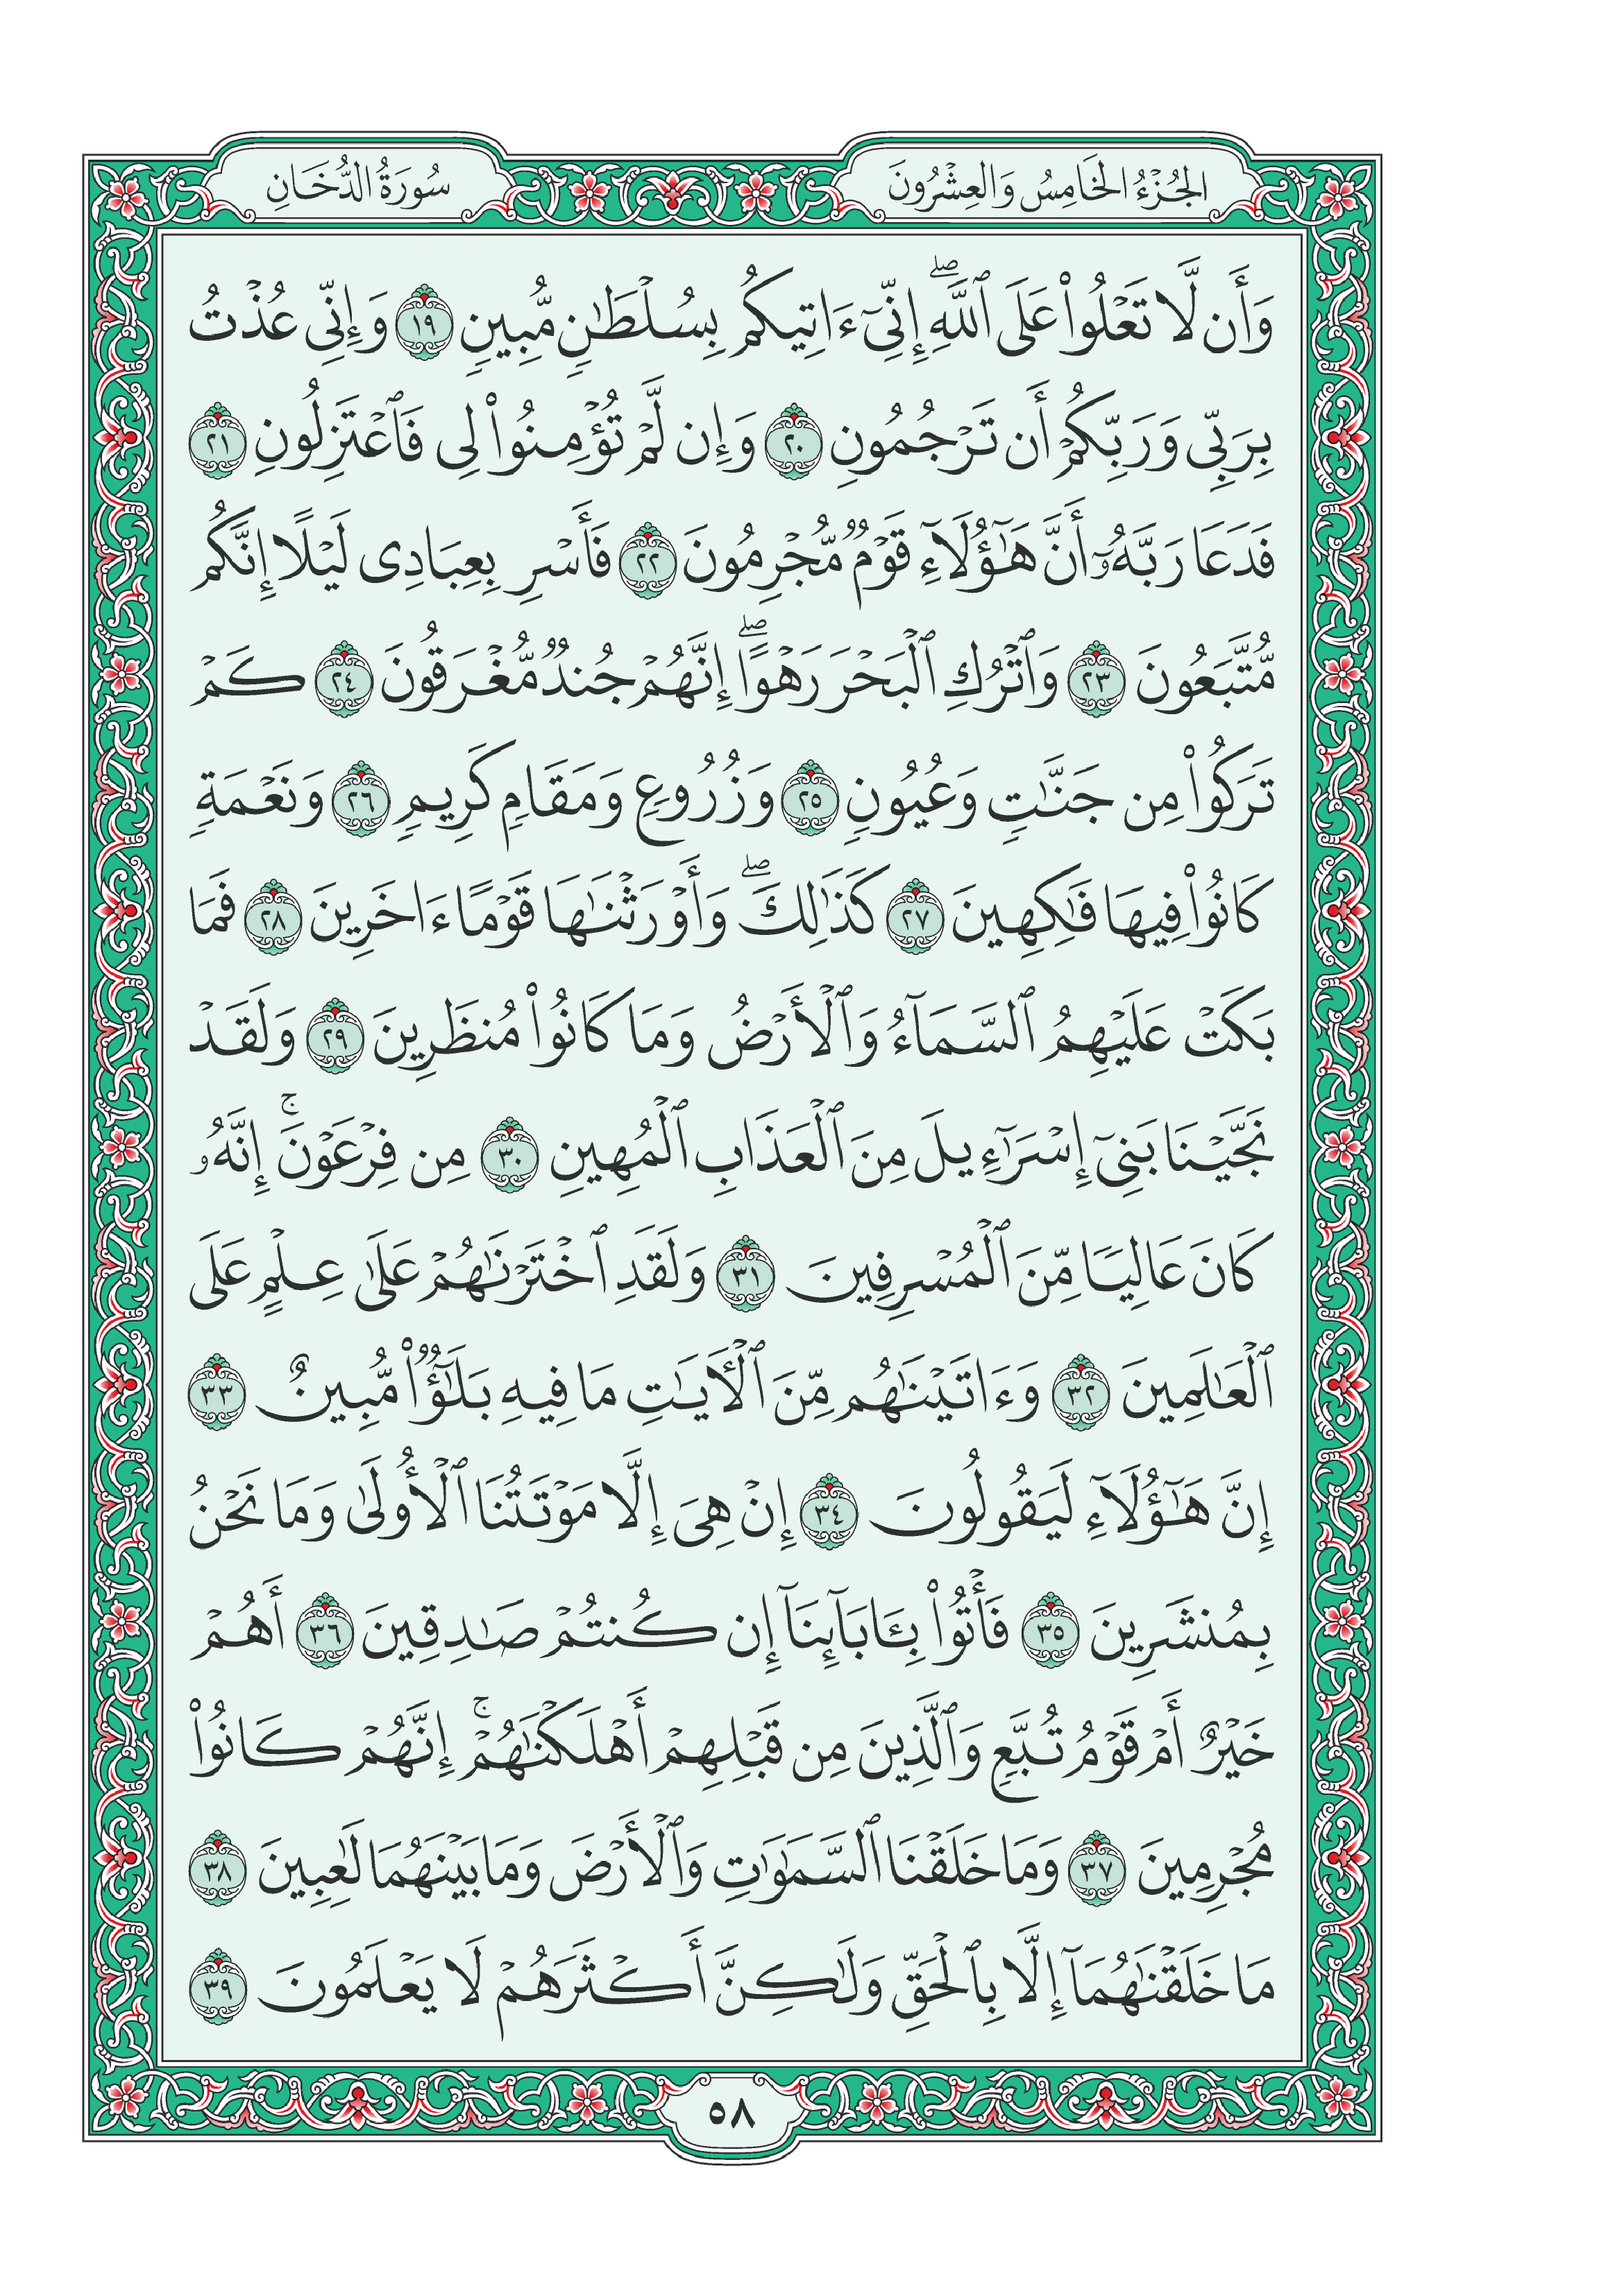 الجُزْءُ الخَامِسُ وَالعِشْرُونَ
سُورَةُ الدُّخَانِ
وَأَن لَّا تَعْلُوا۟ عَلَى ٱللَّهِ ۖ إِنِّىٓ ءَاتِيكُم بِسُلْطَـٰنٍ مُّبِينٍ ١٩ وَإِنِّى عُذْتُ
بِرَبِّى وَرَبِّكُمْ أَن تَرْجُمُونِ ٢٠ وَإِن لَّمْ تُؤْمِنُوا۟ لِى فَٱعْتَزِلُونِ ٢١
فَدَعَا رَبَّهُۥٓ أَنَّ هَـٰٓؤُلَآءِ قَوْمٌ مُّجْرِمُونَ ٢٢ فَأَسْرِ بِعِبَادِى لَيْلًا إِنَّكُم
مُّتَّبَعُونَ ٢٣ وَٱتْرُكِ ٱلْبَحْرَ رَهْوًا ۖ إِنَّهُمْ جُندٌ مُّغْرَقُونَ ٢٤ كَمْ
تَرَكُوا۟ مِن جَنَّـٰتٍ وَعُيُونٍ ٢٥ وَزُرُوعٍ وَمَقَامٍ كَرِيمٍ ٢٦ وَنَعْمَةٍ
كَانُوا۟ فِيهَا فَـٰكِهِينَ ٢٧ كَذَٰلِكَ ۖ وَأَوْرَثْنَـٰهَا قَوْمًا ءَاخَرِينَ ٢٨ فَمَا
بَكَتْ عَلَيْهِمُ ٱلسَّمَآءُ وَٱلْأَرْضُ وَمَا كَانُوا۟ مُنظَرِينَ ٢٩ وَلَقَدْ
نَجَّيْنَا بَنِىٓ إِسْرَٰٓءِيلَ مِنَ ٱلْعَذَابِ ٱلْمُهِينِ ٣٠ مِن فِرْعَوْنَ ۚ إِنَّهُۥ
كَانَ عَالِيًا مِّنَ ٱلْمُسْرِفِينَ ٣١ وَلَقَدِ ٱخْتَرْنَـٰهُمْ عَلَىٰ عِلْمٍ عَلَى
ٱلْعَـٰلَمِينَ ٣٢ وَءَاتَيْنَـٰهُم مِّنَ ٱلْـَٔايَـٰتِ مَا فِيهِ بَلَـٰٓؤٌا۟ مُّبِينٌ ٣٣
إِنَّ هَـٰٓؤُلَآءِ لَيَقُولُونَ ٣٤ إِنْ هِىَ إِلَّا مَوْتَتُنَا ٱلْأُولَىٰ وَمَا نَحْنُ
بِمُنشَرِينَ ٣٥ فَأْتُوا۟ بِـَٔابَآئِنَآ إِن كُنتُمْ صَـٰدِقِينَ ٣٦ أَهُمْ
خَيْرٌ أَمْ قَوْمُ تُبَّعٍ وَٱلَّذِينَ مِن قَبْلِهِمْ أَهْلَكْنَـٰهُمْ ۚ إِنَّهُمْ كَانُوا۟
مُجْرِمِينَ ٣٧ وَمَا خَلَقْنَا ٱلسَّمَـٰوَٰتِ وَٱلْأَرْضَ وَمَا بَيْنَهُمَا لَـٰعِبِينَ ٣٨
مَا خَلَقْنَـٰهُمَآ إِلَّا بِٱلْحَقِّ وَلَـٰكِنَّ أَكْثَرَهُمْ لَا يَعْلَمُونَ ٣٩
٥٨